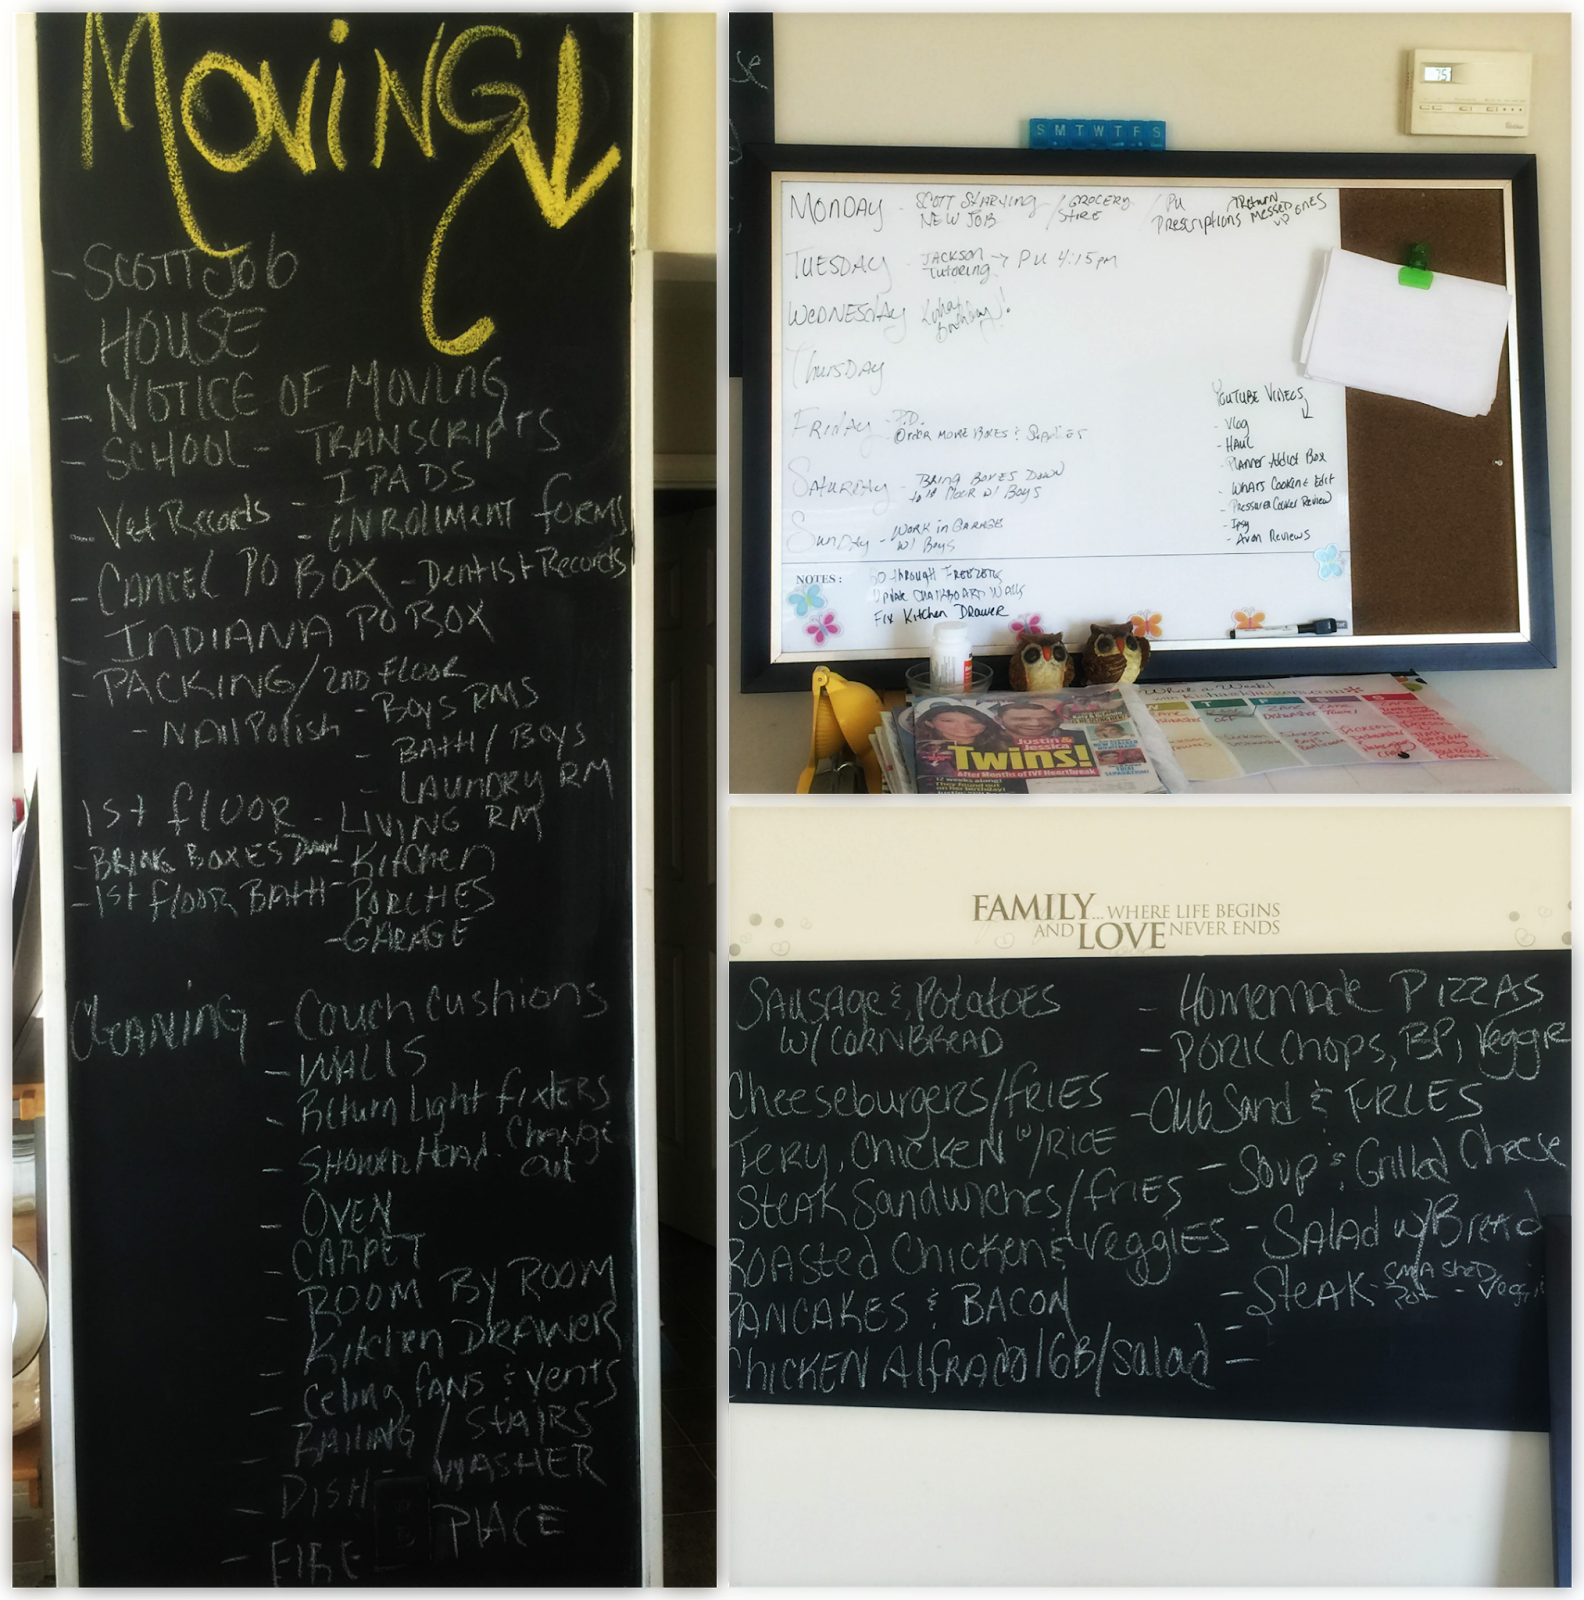 MOVING
- SCOTT JOB
- HOUSE
- NOTICE OF MOVING
- SCHOOL - TRANSCRIPTS
IPADS
- Vet Records - ENROLLMENT forms
- CANCEL PO BOX - Dentist Records
- INDIANA PO BOX
- PACKING / 2ND FLOOR
- NAIL Polish - BOYS RMS
- BATH / BOYS
- LAUNDRY RM
1st floor - LIVING RM
- BRING BOXES Down - Kitchen
- 1st floor BATH - PORCHES
- GARAGE
Cleaning - Couch Cushions
- WALLS
- Return Light fixters
- SHOWER Head - Change out
- OVEN
- CARPET
ROOM BY ROOM
- Kitchen DRAWER
- Celing fANS & vents
- RAILING / STAIRS
- DISH - WASHER
- FIRE PLACE
S M T W T F S
75
MONDAY - SCOTT STARTING NEW JOB / GROCERY STORE / PU Prescriptions / Return MESSED UP ONES
TUESDAY - JACKSON Tutoring -> PU 4:15pm
WEDNESDAY
THURSDAY
FRIDAY - P.D.
Order MORE BOXES & Supplies
SATURDAY - BRING BOXES DOWN
to 1st floor w/ Boys
SUNDAY - WORK in GARAGE
w/ Boys
YOUTUBE VIDEOS
- Vlog
- HAUL
- Planner Addict Box
- WHATS COOKING Edit
- Pressure Cooker Review
- Ipsy
- Avon Reviews
NOTES: GO through FREEZERS
UPDATE CHALKBOARD WALLS
Fix Kitchen DRAWER
Justin &
Jessica
Twins!
After Months of IVF Heartbreak
12 weeks along!
They found out
on her birthday!
What a Week!
FAMILY... WHERE LIFE BEGINS
AND LOVE NEVER ENDS
SAUSAGE & Potatoes
W/ CORNBREAD
Cheeseburgers/FRIES
TERY. CHICKEN w/RICE
STEAK Sandwiches/fries
ROASTED Chicken & veggies
PANCAKES & BACON
CHICKEN Alfrado/GB/salad
- Homemade PIZZAS
- PORK Chops, BP, Veggie
- Club Sand & FRIES
- Soup & Grilled Cheese
- SALAD w/ Bread
- STEAK - SMASHED Pot - Veggi
-
-